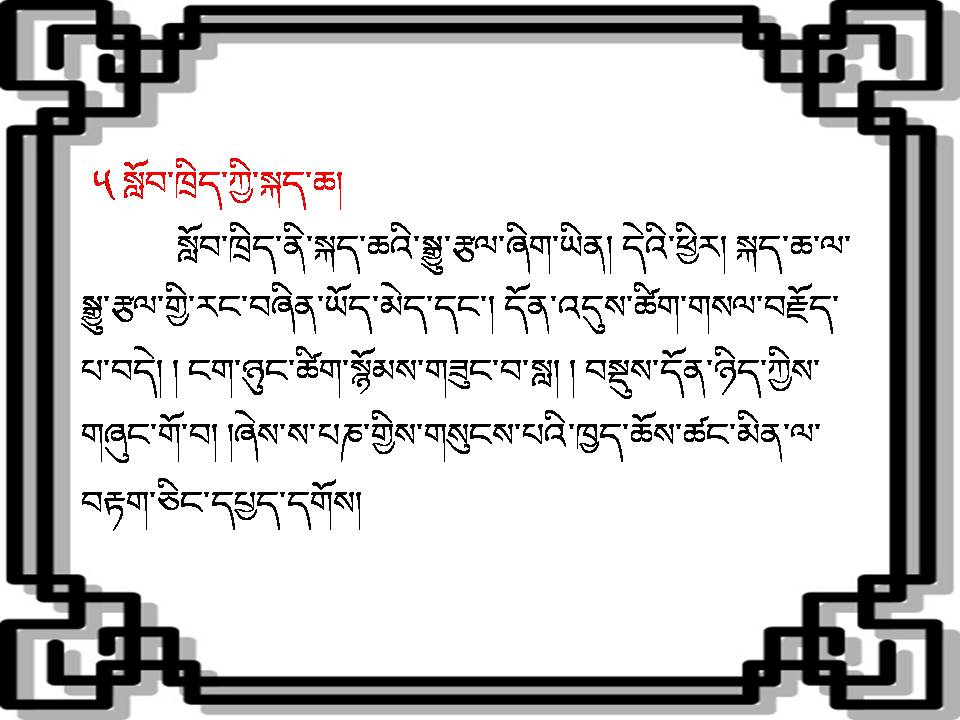 ༥ སློབ་ཁྲིད་ཀྱི་སྐད་ཆ།
སློབ་ཁྲིད་ནི་སྐད་ཆའི་སྒྱུ་རྩལ་ཞིག་ཡིན། དེའི་ཕྱིར། སྐད་ཆ་ལ་
སྒྱུ་རྩལ་གྱི་རང་བཞིན་ཡོད་མེད་དང་། དོན་འདུས་ཚིག་གསལ་བརྗོད་
པ་བདེ། ། ངག་ཉུང་ཚིག་སྙོམས་གཟུང་བ་སླ། ། བསྡུས་དོན་ཉིད་ཀྱིས་
གཞུང་གོ་བ། །ཞེས་ས་པཎ་གྱིས་གསུངས་པའི་ཁྱད་ཆོས་ཚང་མིན་ལ་
བརྟག་ཅིང་དཔྱད་དགོས།